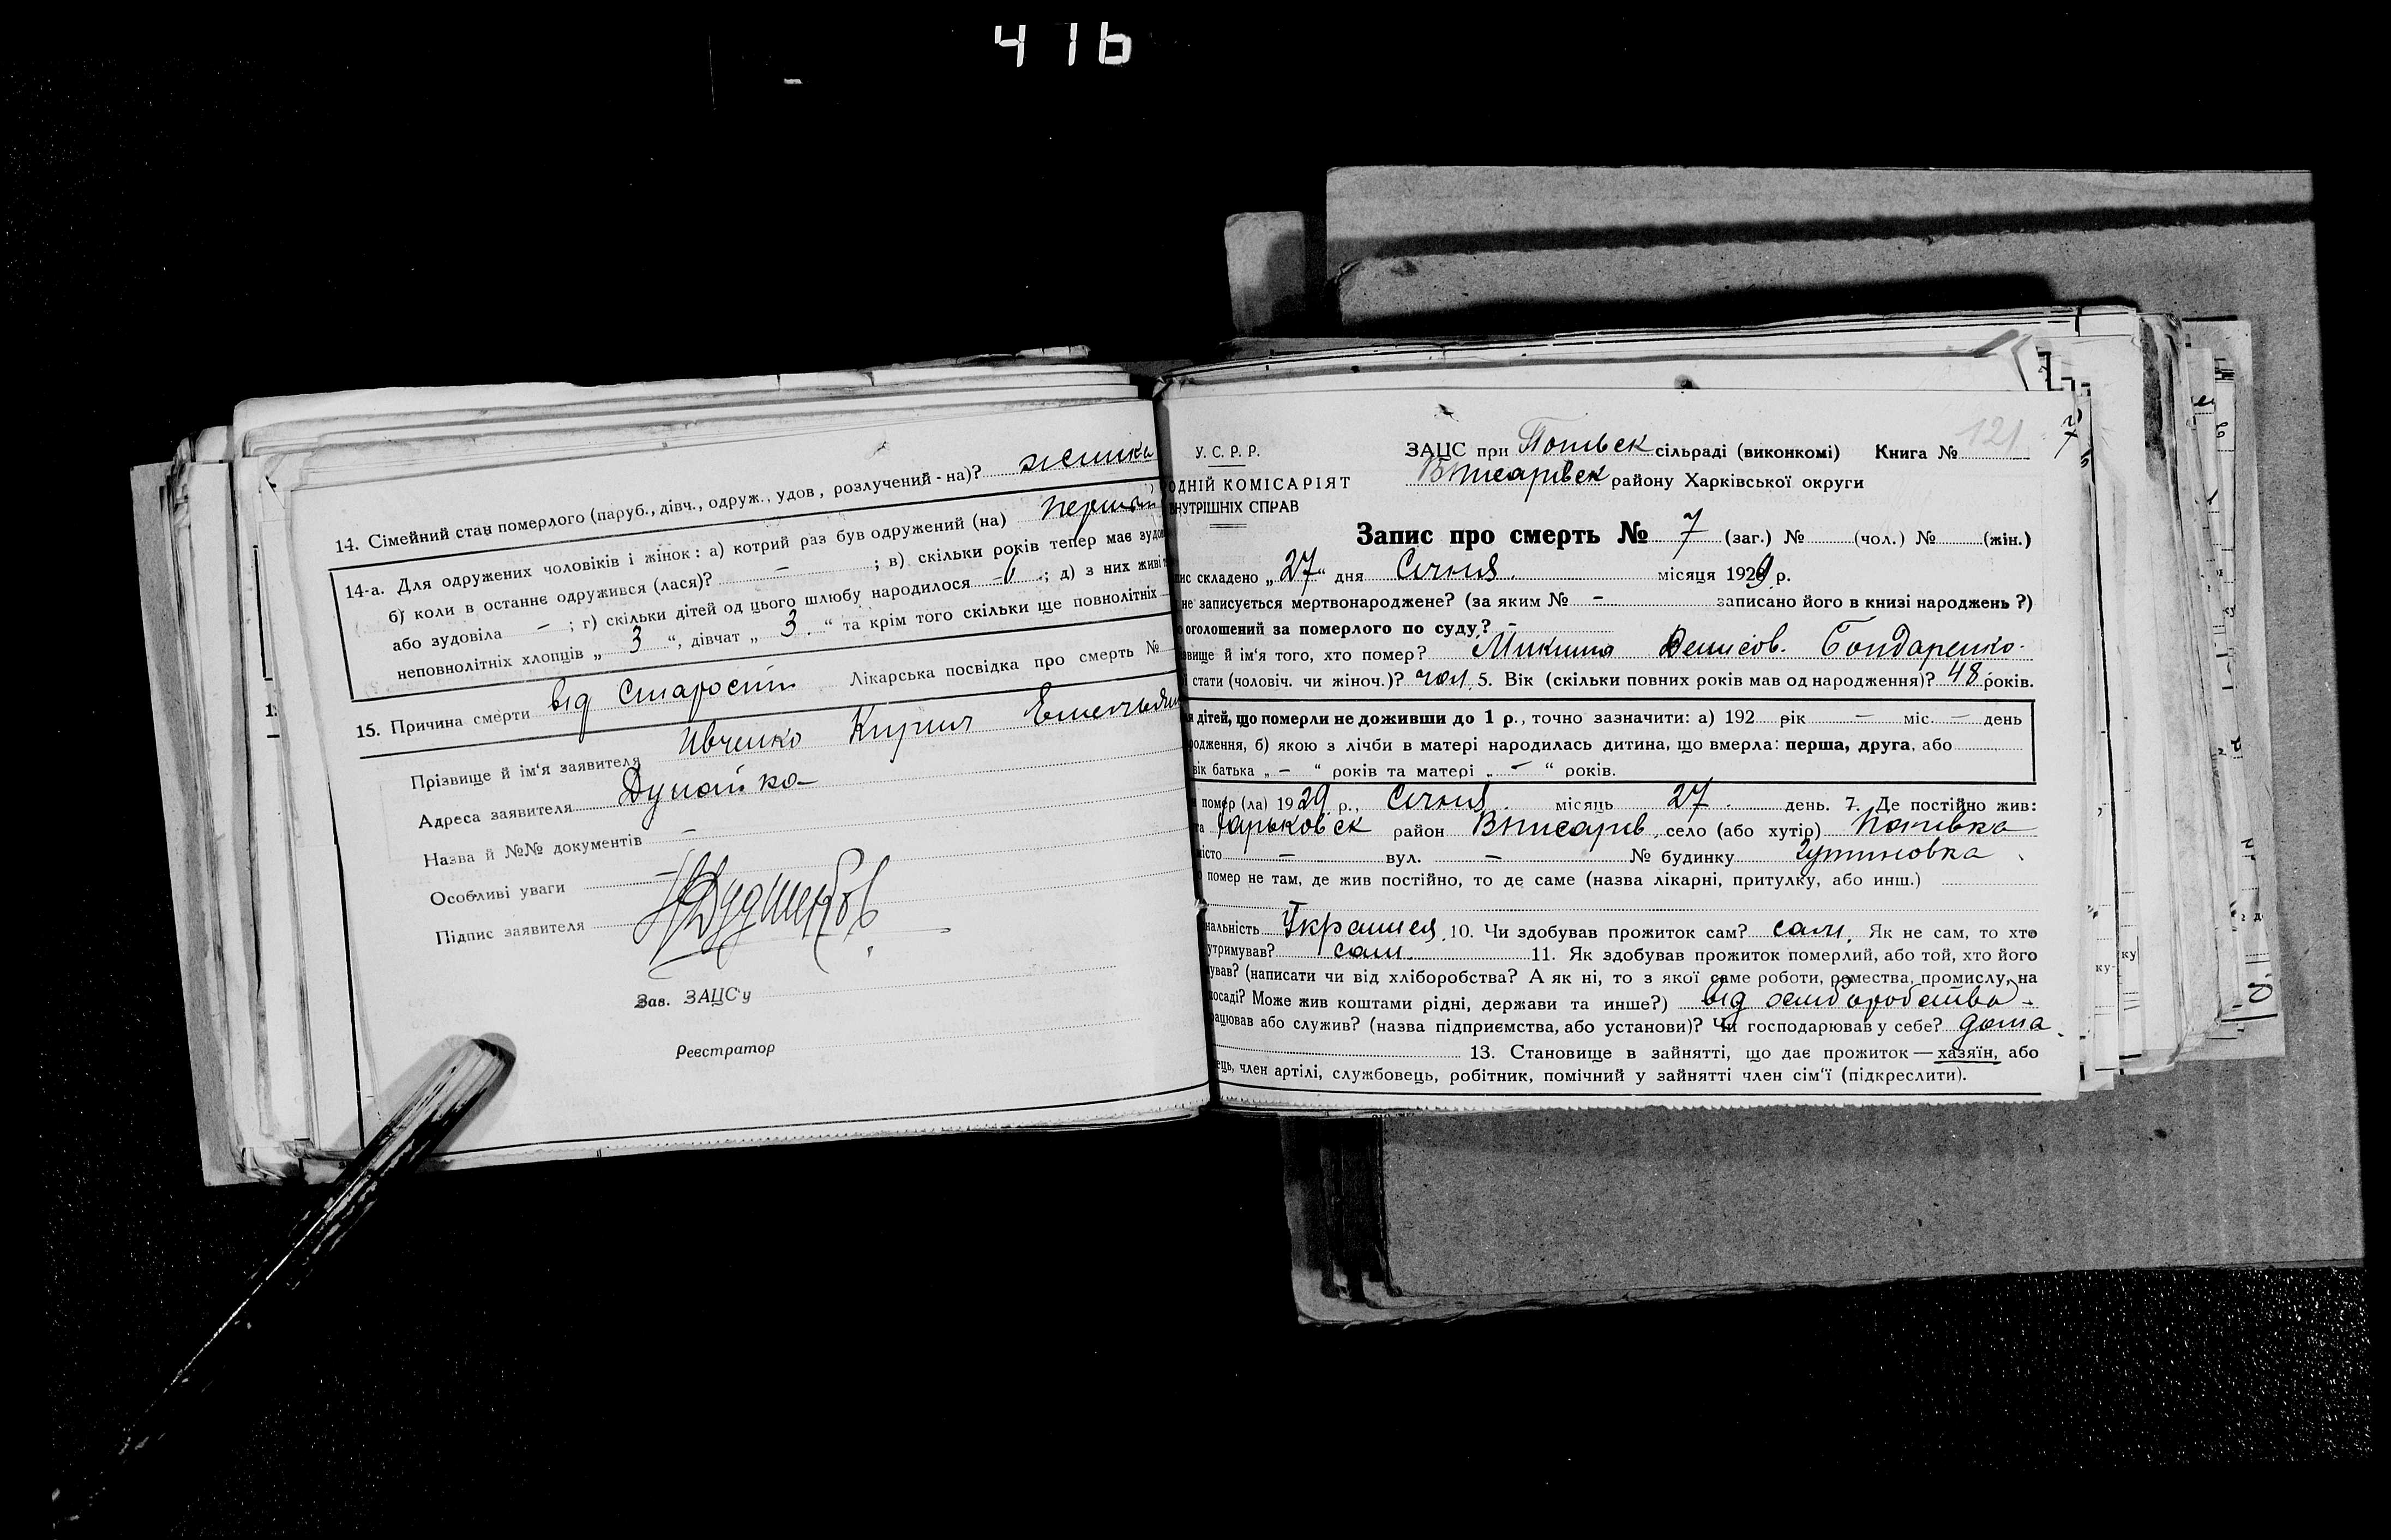 416
14. Сімейний стан померлого (паруб., дівч., одруж., удов, розлучений - на)?
14-а. Для одружених чоловіків і жінок: а) котрий раз був одружений (на)
б) коли в останнє одружився (лася)? – ; в) скільки років тепер має
або зудовіла – ; г) скільки дітей од цього шлюбу народилося ; д) з них
неповнолітніх хлопців „ 3 “, дівчат „ 3. “ та крім того скільки ще повнолітніх
15. Причина смерти від старости Лікарська посвідка про смерть №
Прізвище й ім‘я заявителя Ивченко Кирил
Адреса заявителя Дунайка
Назва й №№ документів –
Особливі уваги –
Підпис заявителя
Зав. ЗАЦС‘у
Реєстратор
У. С. Р. Р.
ОДНІЙ КОМІСАРІЯТ
НУТРІШНІХ СПРАВ
ЗАЦС при сільраді (виконкомі) Книга № 121
району Харківської округи
Запис про смерть № 7 (заг.) № (чол.) № (жін.)
ис складено „ 27 “ дня Січня місяця 1929 р.
не записується мертвонароджене? (за яким № – записано його в книзі народжень ?)
оголошений за померлого по суду? –
вище й ім‘я того, хто помер? Микита Денисов. Бондаренко.
стати (чоловіч. чи жіноч.)? чол. 5. Вік (скільки повних років мав од народження)? 48 років.
дітей, що померли не доживши до 1 р., точно зазначити: а) 192 рік – міс. – день
одження, б) якою з лічби в матері народилась дитина, що вмерла: перша, друга, або
вік батька „ – “ років та матері „ – “ років.
помер (ла) 1929 р., Січня місяць 27 день. 7. Де постійно жив:
Харьковск район Вписарів село (або хутір)
місто – вул. – № будинку
помер не там, де жив постійно, то де саме (назва лікарні, притулку, або инш.)
нальність 10. Чи здобував прожиток сам? сам. Як не сам, то хто
утримував? сам 11. Як здобував прожиток померлий, або той, хто його
ував? (написати чи від хліборобства? А як ні, то з якої саме роботи, ремества, промислу, на
посаді? Може жив коштами рідні, держави та инше?) від
ацював або служив? (назва підприємства, або установи)? Чи господарював у себе? дома
13. Становище в зайнятті, що дає прожиток — хазяїн, або
ець, член артілі, службовець, робітник, помічний у зайнятті член сім‘ї (підкреслити).